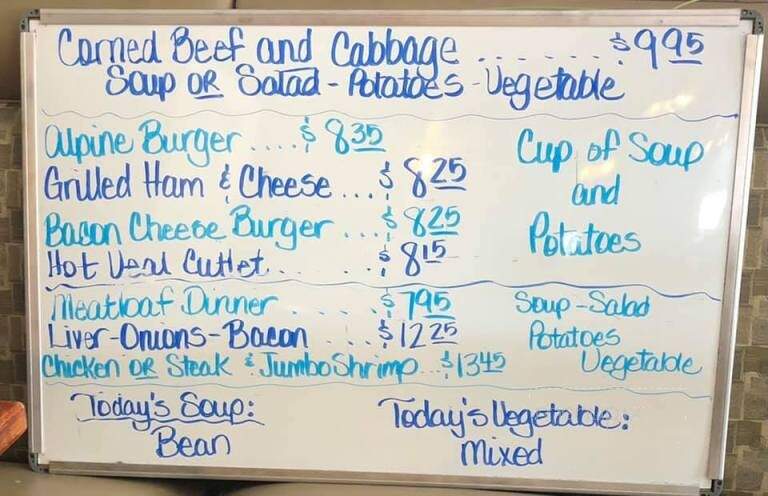 Corned Beef and Cabbage ....... $9.95
Soup OR Salad - Potatoes - Vegetable
Alpine Burger ..... $8.35
Grilled Ham & Cheese ... $8.25
Bacon Cheese Burger ... $8.25
Hot Veal Cutlet ..... $8.15
Cup of Soup
and
Potatoes
Meatloaf Dinner ..... $7.95
Liver-Onions-Bacon ..... $12.25
Chicken OR Steak & Jumbo Shrimp ... $13.45
Soup-Salad
Potatoes
Vegetable
Today's Soup:
Bean
Today's Vegetable:
Mixed